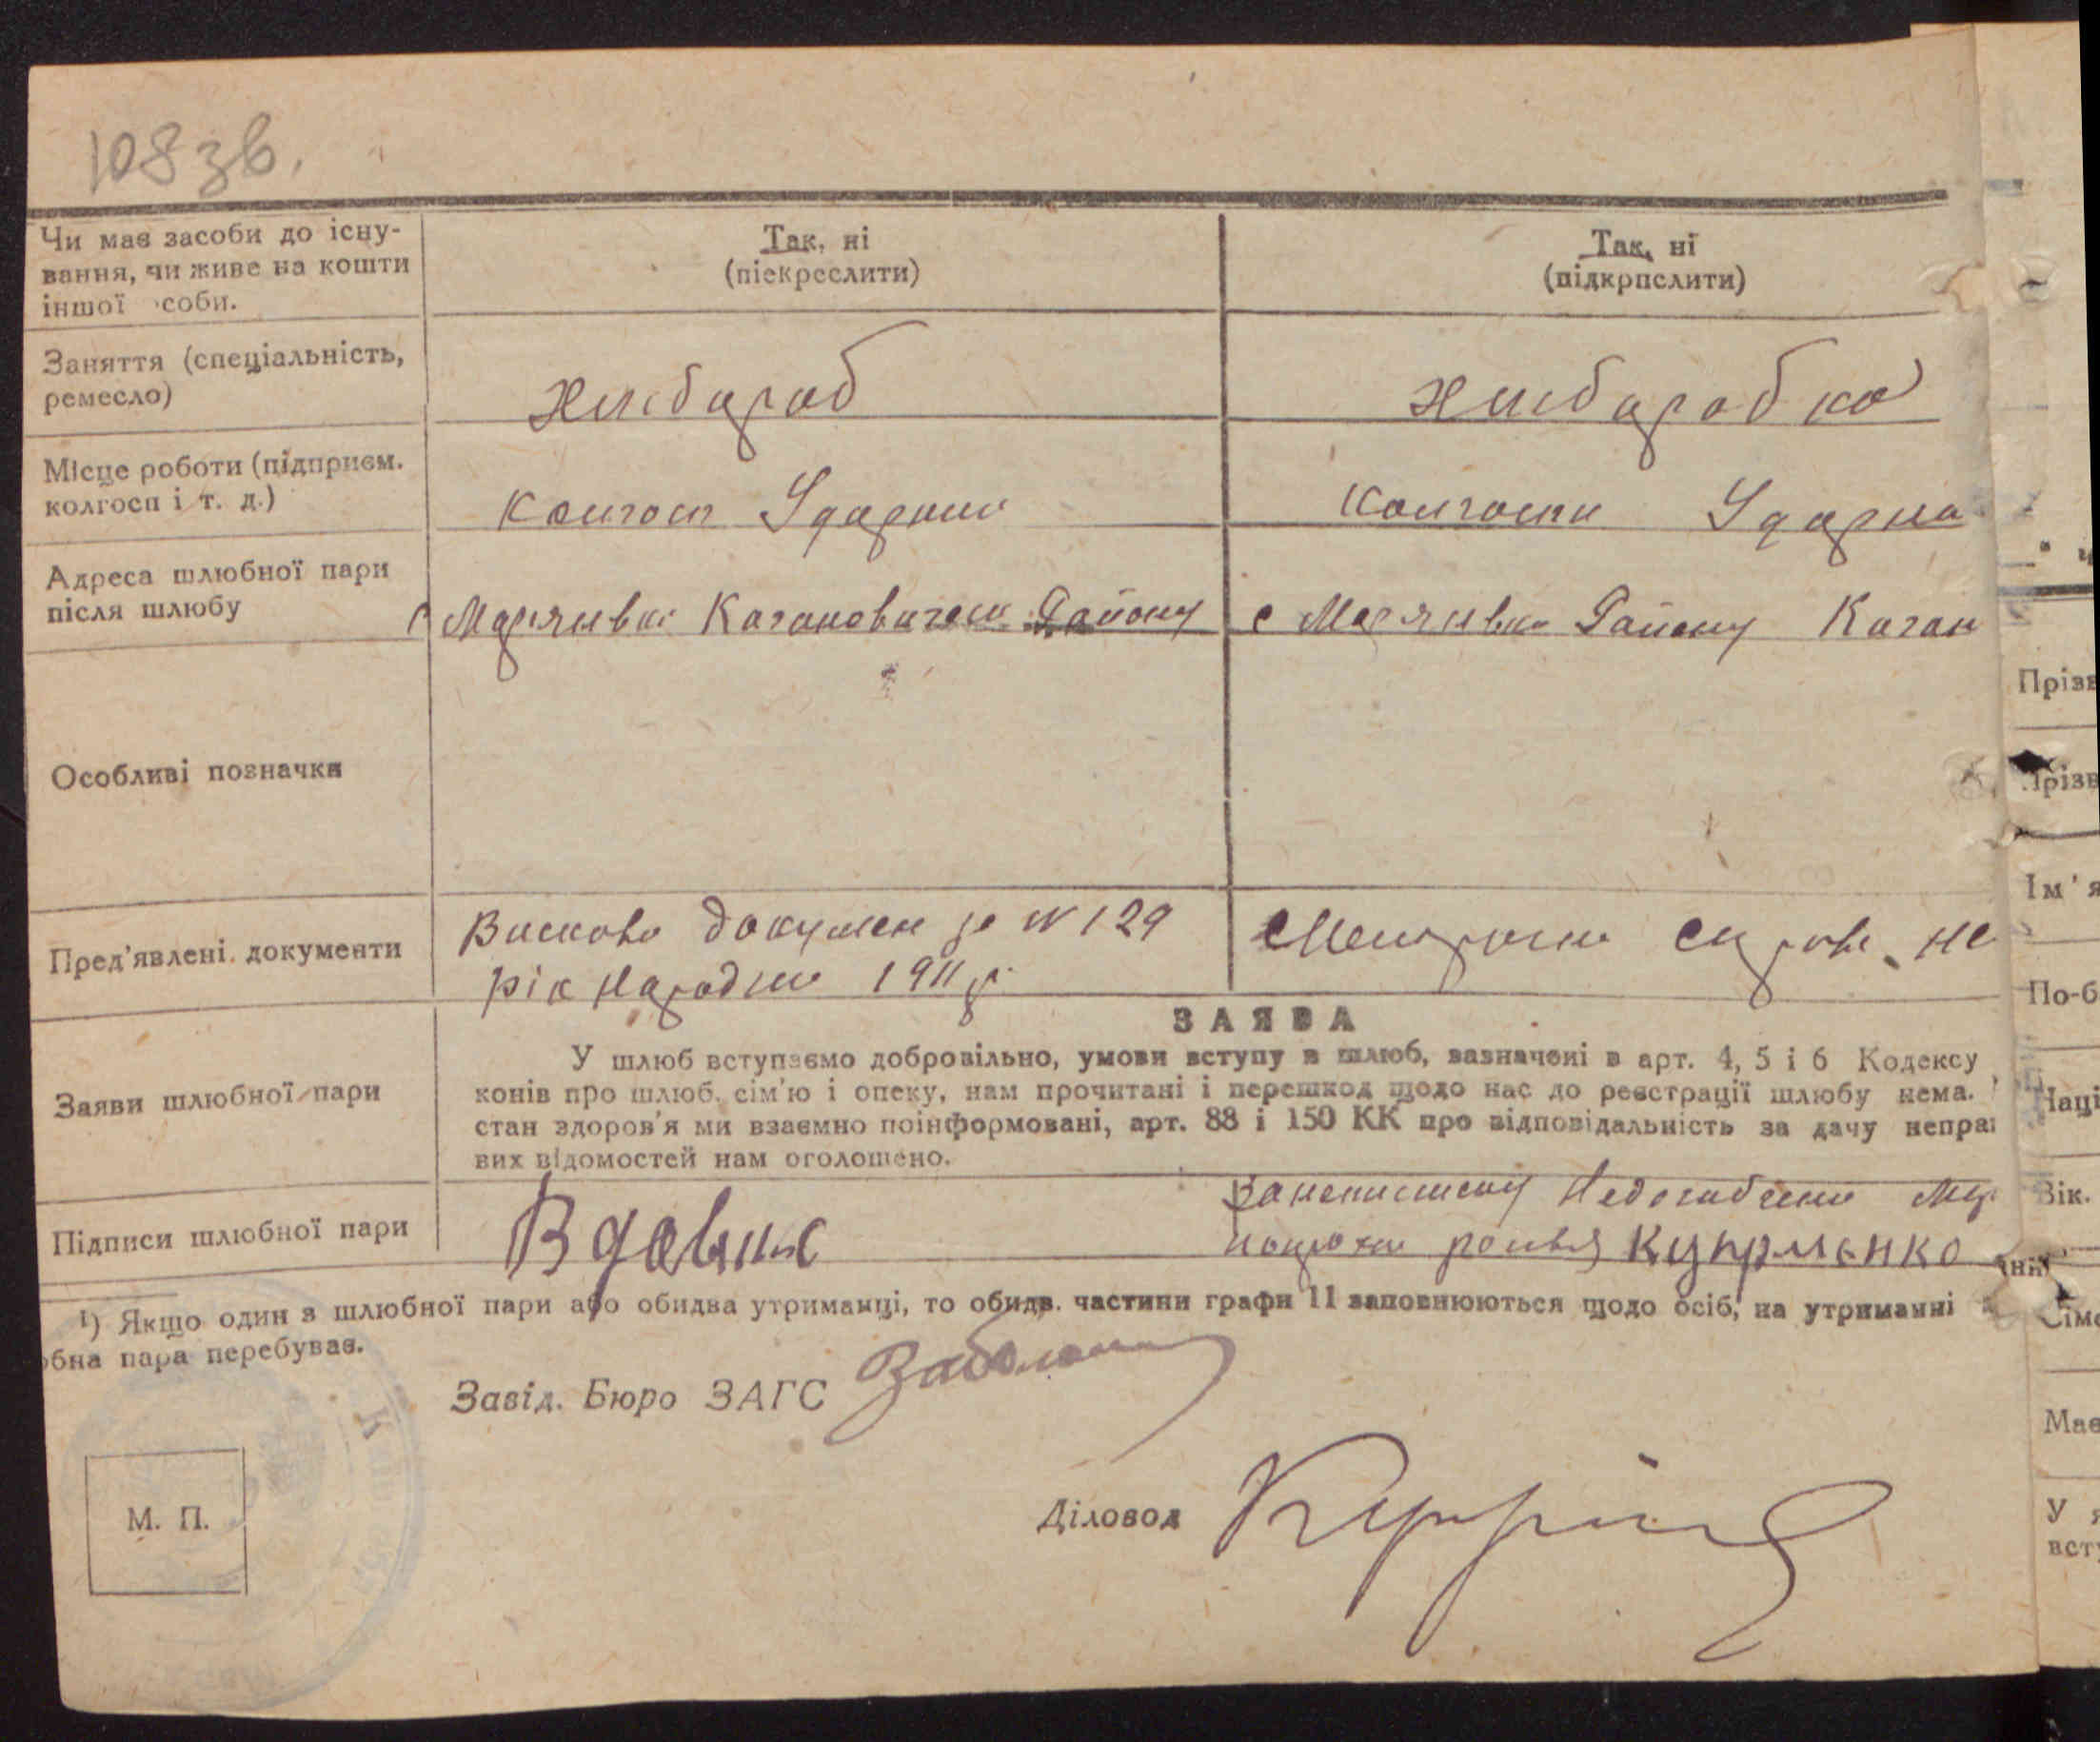 108 зв.
Чи має засоби до існу-
вання, чи живе на кошти
іншої особи.
Так, ні
(піекреслити)
Так, ні
(підкрпслити)
Заняття (спеціальність,
ремесло)
Хлібароб
Хлібаробка
Місце роботи (підприєм.
колгосп і т. д.)
Колгосп Ударник
Колгосп Ударни
Адреса шлюбної пари
після шлюбу
с Мар'янівка Кагановичськ Району
с Мар'янівка Району Каган
Особливі позначки
Пред'явлені документи
Висково докумен за № 129
рік народжи 1911 р.
справк не
ЗАЯВА
У шлюб вступаємо добровільно, умови вступу в шлюб, зазначені в арт. 4, 5 і 6 Кодексу
конів про шлюб, сім'ю і опеку, нам прочитані і перешкод щодо нас до реєстрації шлюбу нема.
Заяви шлюбної пари
стан здоров'я ми взаємно поінформовані, арт. 88 і 150 КК про відповідальність за дачу неправ
вих відомостей нам оголошено.
Підписи шлюбної пари
Вдовик
Куприенко
¹) Якщо один з шлюбної пари або обидва утриманці, то обидв. частини графи 11 заповнюються щодо осіб, на утриманні
обна пара перебуває.
Завід. Бюро ЗАГС
Діловод
М. П.
Прізв
Прізв
Ім'я
По-б
Наці
Вік.
Сіме
Має
У я
всту